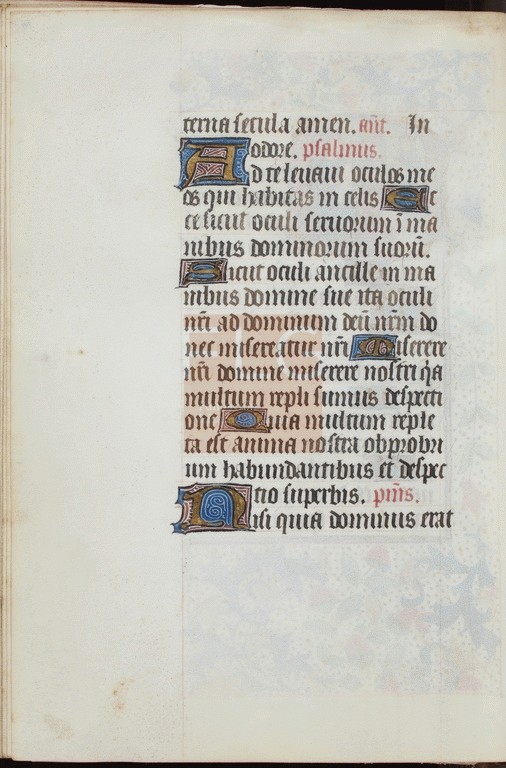 terna secula amen. an̄t. In
odore. psalmus.
Ad te leuaui oculos me
os qui habitas in celis Ec
ce sicut oculi seruorum ī ma
nibus dominorum suorū.
Sicut oculi ancille in ma
nibus domine sue ita oculi
nr̄i ad dominum deū nr̄m do
nec misereatur nr̄i Miserere
nr̄i domine miserere nostri q̄a
multum repleti sumus despecti
one Quia multum reple
ta est anima nostra obprobri
um habundantibus et despec
tio superbis. p̄m̄s.
Nisi quia dominus erat